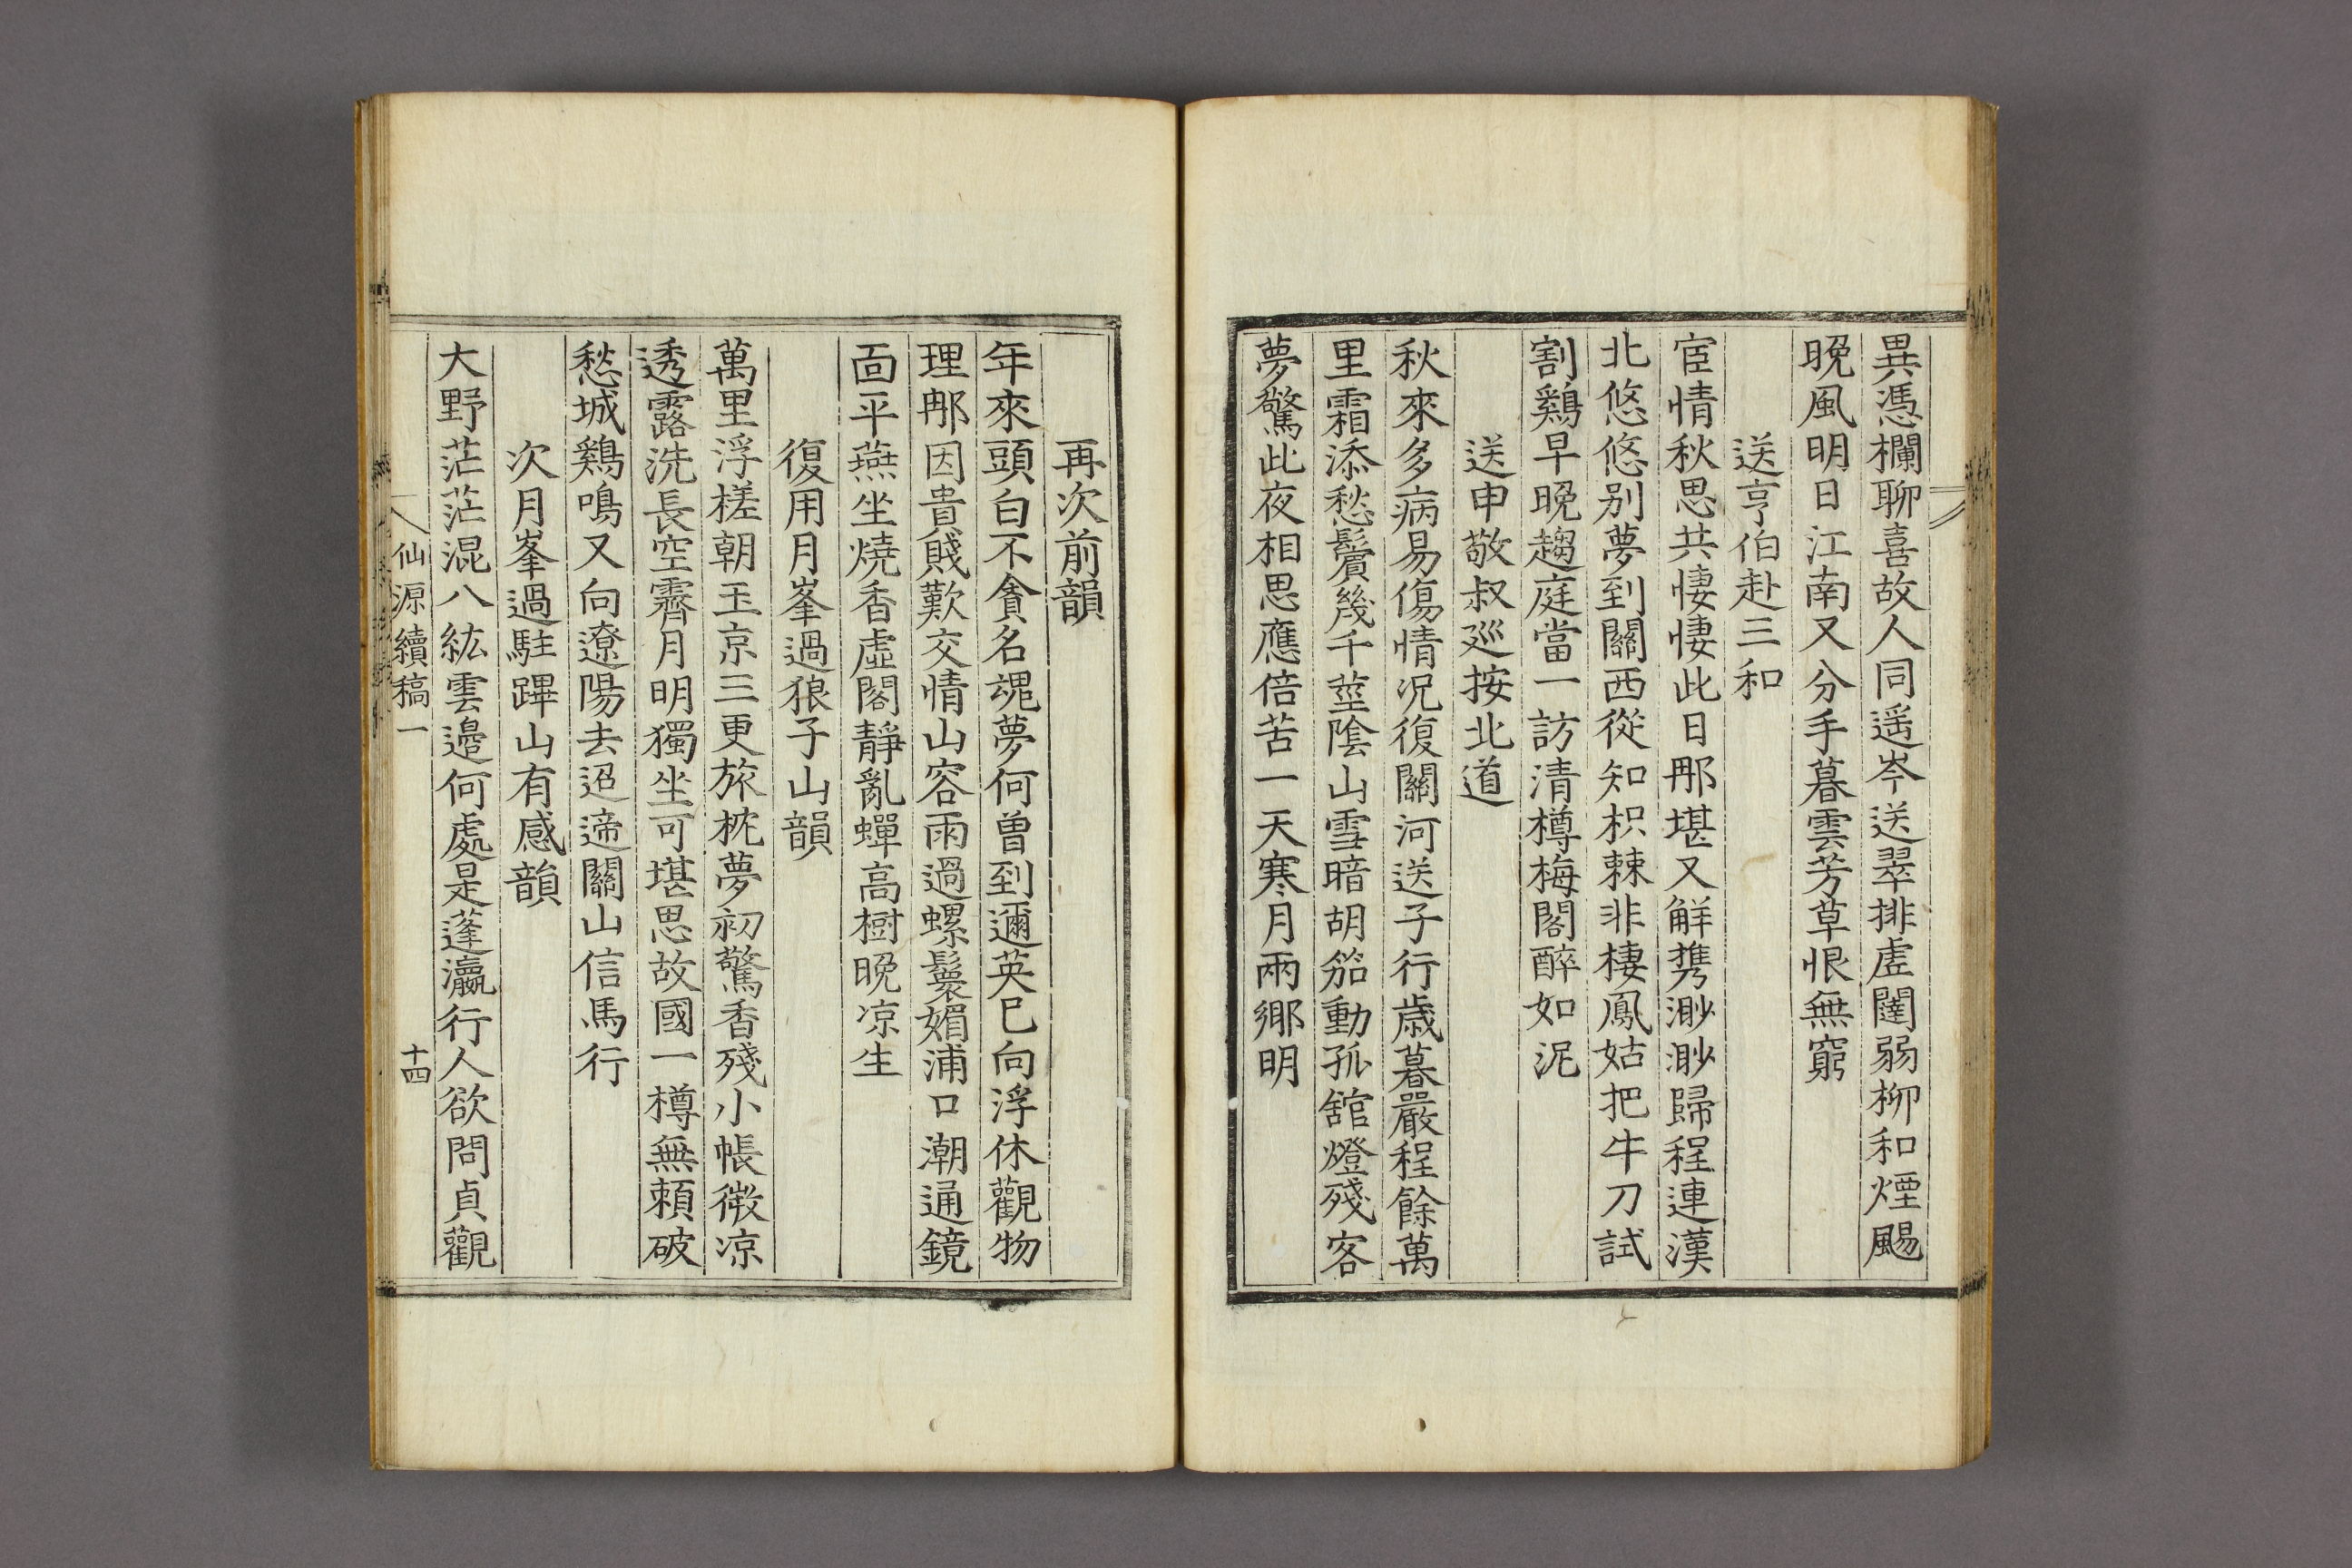 異憑欄聊喜故人同遥岑送翠排虛闥弱柳和煙颺
晚風明日江南又分手暮雲芳草恨無窮
送亨伯赴三和
宦情秋思共悽悽此日那堪又解携渺渺歸程連漢
北悠悠别夢到關西從知枳棘非棲鳳姑把牛刀試
割鷄早晚趨庭當一訪清樽梅閣醉如泥
送申敬叔廵按北道
秋來多病易傷情况復關河送子行歲暮嚴程餘萬
里霜添愁鬢幾千莖陰山雪暗胡笳動孤舘燈殘客
夢驚此夜相思應倍苦一天寒月兩鄉明
再次前韻
年來頭白不貪名魂夢何曾到邇英已向浮休觀物
理那因貴賤歎交情山容雨過螺鬟媚浦口潮通鏡
面平燕坐燒香虛閣靜亂蟬高樹晚凉生
復用月峯過狼子山韻
萬里浮槎朝玉京三更旅枕夢初驚香殘小帳微凉
透露洗長空霽月明獨坐可堪思故國一樽無賴破
愁城鷄鳴又向遼陽去迢遞關山信馬行
次月峯過駐蹕山有感韻
大野茫茫混八紘雲邉何處是蓬瀛行人欲問貞觀
仙源續稿一
十四